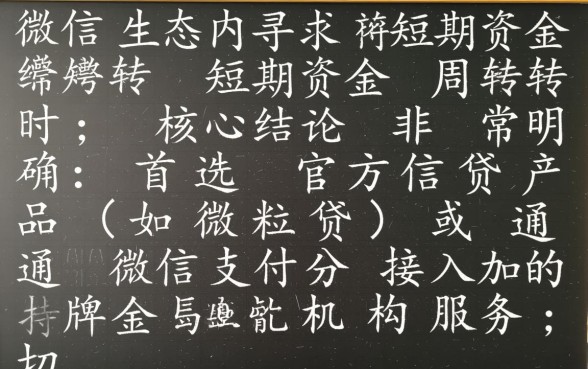 微信 生态内寻求 短期资金
转 短期资金 周转转
时； 核心结论 非 常明
确： 首选 官方信贷产
品 （如微粒贷）或 通
通 微信支付分 接入加的
持牌金 机 构 服务；
切